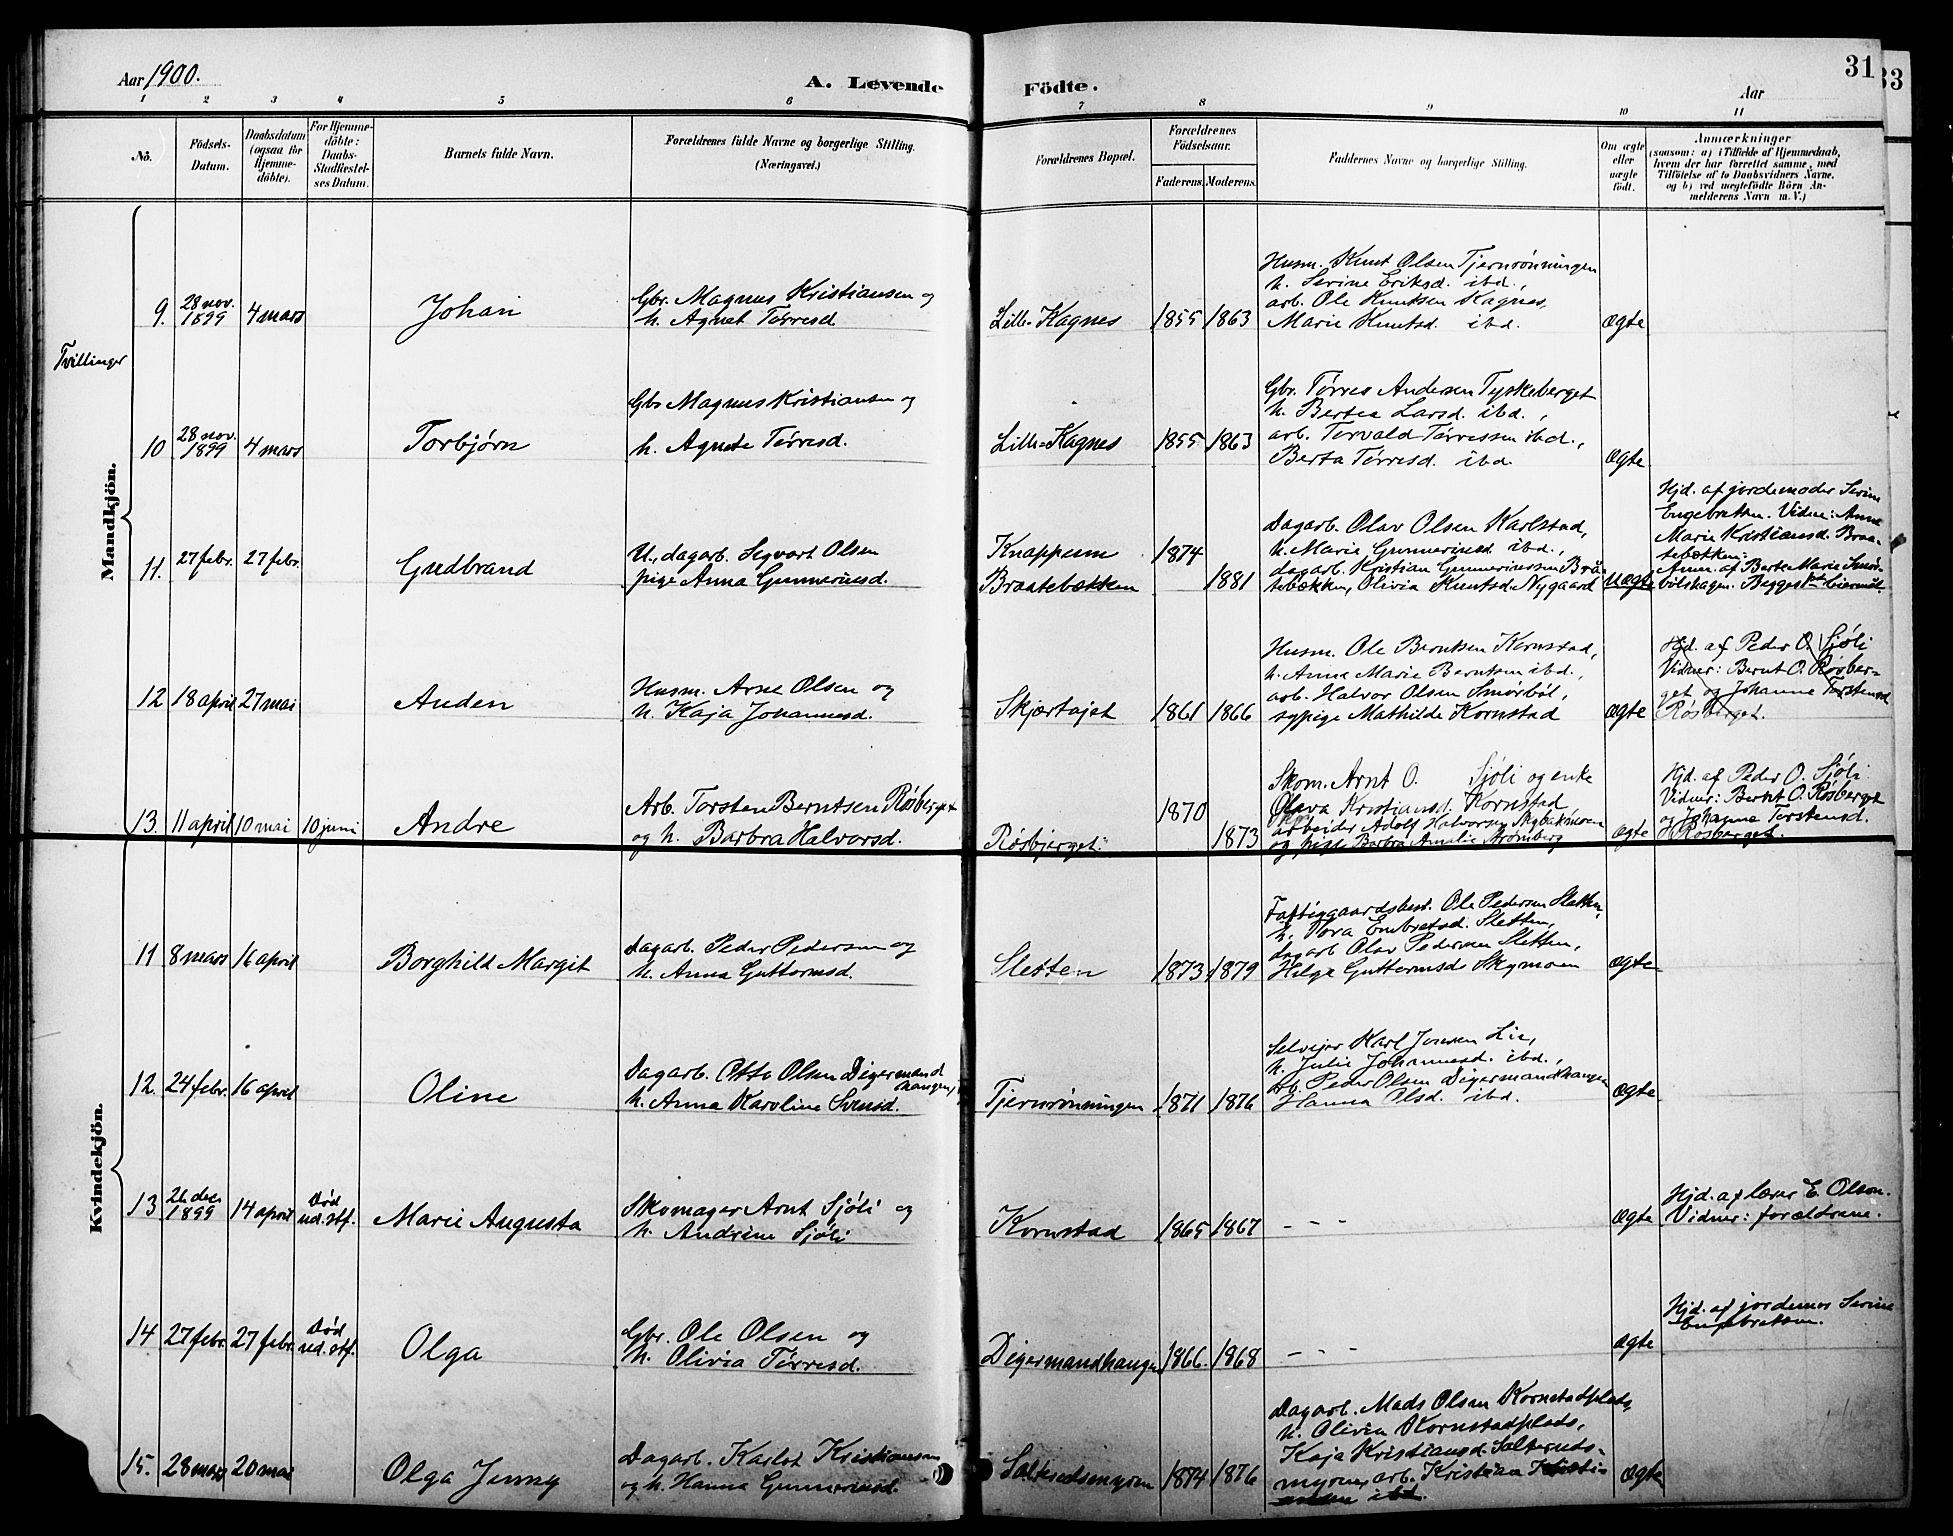 Aar 1900.
A. Levende Födte.
Aar
31
33
1 2 3 4 5 6 7 8 9 10 11
No.
Födsels-
Datum.
Daabsdatum
(ogsaa for
Hjemme-
döbte).
For Hjemme-
döbte:
Daabs-
Stadfæstel-
ses Datum.
Barnets fulde Navn.
Forældrenes fulde Navne og borgerlige Stilling.
(Næringsvei.)
Forældrenes Bopæl.
Forældrenes
Födselsaar.
Faderens. Moderens.
Faddernes Navne og borgerlige Stilling.
Om ægte
eller
uægte
födt.
Anmærkninger
(saasom: a) i Tilfælde af Hjemmedaab,
hvem der har forrettet samme, med
Tilföielse af to Daabsvidners Navne.
og b) ved uægtefödte Börn An-
melderens Navn m. V.)
Mandkjön.
Tvillinger
9.
28 nov.
1899
4 mars
Johan
Gbr. Magnus Kristiansen og
h. Agnet Tørresd.
Lille-Kagnes
1855 1863
Husm. Knut Olsen Tjernrønningen
h. Serine Eriksd. ibd.,
arb. Ole Knutsen Kagnes,
Marie Knutsd. ibd.
ægte
10
28 nov.
1899
4 mars
Torbjørn
Gbr Magnus Kristiansen og
h. Agnete Tørresd.
Lille=Kagnes
1855 1863
Gbr. Tørres Andersen Tyskeberget
h. Bertea Larsd. ibd.,
arb. Torvald Tørressen ibd.,
Berta Tørresd. ibd.
ægte
11.
27 febr. 27 febr.
Gudbrand
U., dagarb. Segvart Olsen
pige Anna Gunneriusd.
Knappum
Braatebækken
1874
1881
Dagarb. Olav Olsen Karlstad,
h. Marie Gunneriusd ibd.,
dagarb. Kristian Gunneriussen Brå-
tebækken, Olivia Knutsd. Nygaard
uægte
Hjd. af jordemoder Serine
Engebretsen. Vidner: Anne
Marie Kristiansd. Braa-
tebækken.
Anm. af Berte Marie Smør-
bølshagen. Begges 1ste leiermål.
12
18 april 27 mai
Auden
Husm. Arne Olsen og
h. Kaja Johannesd.
Skjærtajet
1861 1866
Husm. Ole Berntsen Kornstad,
h. Anne Marie Berntsen ibd.,
arb. Halvor Olsen Smørbøl,
sypige Mathilde Kornstad
ægte
Hjd. af Peder O. Sjöli
Vidner: Bernt O. Røsber-
get og Johanne Torstensd
Røsberget.
13.
11 april 10 mai 10 juni
Andre
Arb. Torsten Berntsen Røsberget
og h. Barbra Halvorsd.
Røsbjerget.
1870
1873
Skom. Arnt O. Sjöli og enke
Olava Kristiansd. Kornstad,
arbeider Adolf Halvorsen
og pige Barbra Amalie Strømberg
ægte
Hjd. af Peder O. Sjöli.
Vidner: Bernt O. Røsberget
og Johanne Torstensd.
Røsberget.
Kvindekjön.
11
8 mars 16 april
Borghild Margit
Dagarb. Peder Pedersen og
h. Anna Guttormsd.
Sletten
1873 1879
Fattiggaardsbest. Ole Pedersen Sletten,
h. Tora Embretsd. Sletten,
dagarb Olav Pedersen Sletten,
Helga Guttormsd. Skymoen
ægte
12.
24 febr. 16 april
Oline
Dagarb. Otto Olsen Digermand
hangen,
h. Anna Karoline Svensd.
Tjernrønningen
1871 1876
Selveier Karl Jensen Lie,
h. Julie Johannesd. ibd.,
arb. Peder Olsen Digermandhangen
Hanna Olsd. ibd.
ægte
13
26 dec.
1899
14 april
Død
ud. stf.
Marie Augusta
Skomager Arnt Sjöli og
h. Andrine Sjöli
Kornstad
1865 1867
- - -
ægte
Hjd. af lærer E. Olson.
Vidner: forældrene.
14
27 febr. 27 febr.
Død
ud. stf.
Olga
Gbr. Ole Olsen og
h. Olivia Tørresd.
Digermandhangen
1866 1868
- - -
ægte
Hjd. af jordemor Serine
Engebretsen.
15.
28 mars 20 mai
Olga Jenny
Dagarb. Karlot Kristiansen
og h. Hanna Gunneriusd.
Salterudsmyren
1874 1876
Dagarb. Mads Olsen Kornstadplads,
h. Olivia Kornstadplads,
Kaja Kristiansd. Salteruds-
myren, arb. Kristian Kristi-
ansen ibd.
ægte